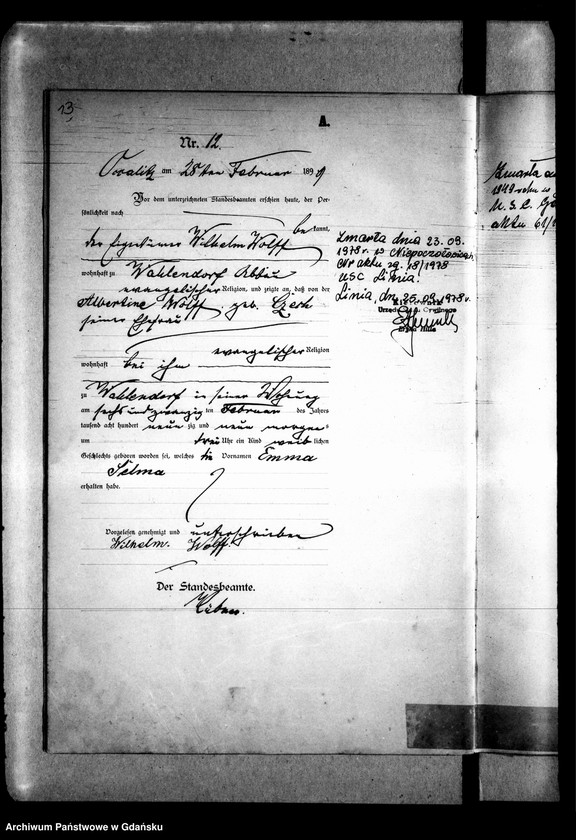 13
A.
Nr. 12.
am 28ten Februar 1899
Vor dem unterzeichneten Standesbeamten erschien heute, der Per-
sönlichkeit nach
bekannt,
der Eigentümer Wilhelm Wolff
wohnhaft zu Wahlendorf Abbau
evangelischer Religion, und zeigte an, daß von der
Albertine Wolff geb. Czech
seiner Ehefrau
evangelischer Religion
wohnhaft bei ihm
zu Wahlendorf in seiner Wohnung
am sechsundzwanzig ten Februar des Jahres
tausend acht hundert neun zig und neun morgens
um drei Uhr ein Kind weib lichen
Geschlechts geboren worden sei, welches die Vornamen Emma
Selma
erhalten habe.
Vorgelesen, genehmigt und unterschrieben
Wilhelm. Wolff.
Der Standesbeamte.
Zmarła dnia 23.09.
1978 r. w Niepoczołowicach
Nr aktu zg. 18/1978
USC Linia.
Linia, dn. 25.09.1978 r.
Zmarła
1942 roku w
U. S. C.
aktu 61/
Archiwum Państwowe w Gdańsku